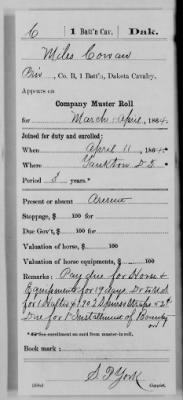 C | 1 Batt'n Cav. | Dak.
Miles Cowan
Priv, Co. B, 1 Batt'n, Dakota Cavalry.
Appears on
Company Muster Roll
for March & April, 1864.
Joined for duty and enrolled:
When April 11, 1864.
Where Yankton D.T.
Period 3 years.
Present or absent Present
Stoppage, $ 100 for
Due Gov't, $ 100 for
Valuation of horse, $ 100
Valuation of horse equipments, $ 100
Remarks: Pay due for Horse &
Equipments for 19 days
for 1 & 2 Spur Straps
Due for 1st Installment of Bounty
Book mark:
S. P. York
Copyist.